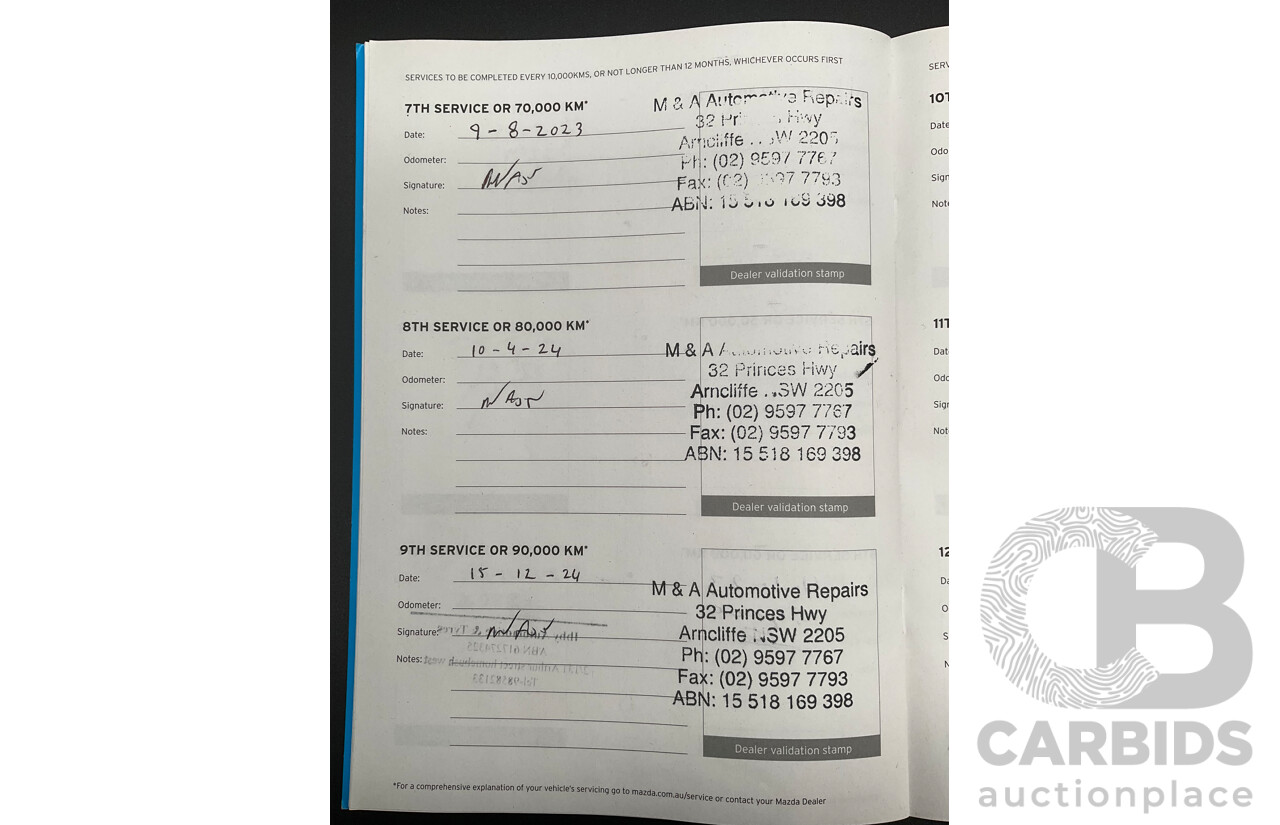 SERVICES TO BE COMPLETED EVERY 10,000KMS, OR NOT LONGER THAN 12 MONTHS, WHICHEVER OCCURS FIRST
7TH SERVICE OR 70,000 KM*
Date: 9-8-2023
Odometer:
Signature:
Notes:
M & A Automotive Repairs
32 Princes Hwy
Arncliffe NSW 2205
Ph: (02) 9597 7767
Fax: (02) 9597 7793
ABN: 15 518 169 398
Dealer validation stamp
8TH SERVICE OR 80,000 KM*
Date: 10-4-24
Odometer:
Signature:
Notes:
M & A Automotive Repairs
32 Princes Hwy
Arncliffe NSW 2205
Ph: (02) 9597 7767
Fax: (02) 9597 7793
ABN: 15 518 169 398
Dealer validation stamp
9TH SERVICE OR 90,000 KM*
Date: 15-12-24
Odometer:
Signature:
Notes:
M & A Automotive Repairs
32 Princes Hwy
Arncliffe NSW 2205
Ph: (02) 9597 7767
Fax: (02) 9597 7793
ABN: 15 518 169 398
Dealer validation stamp
*For a comprehensive explanation of your vehicle's servicing go to mazda.com.au/service or contact your Mazda Dealer
CARBIDS
auctionplace